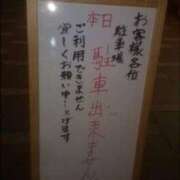 お客様各位
駐車場
本日 駐車出来ません
ご利用できません
宜しくお願い申し上げます